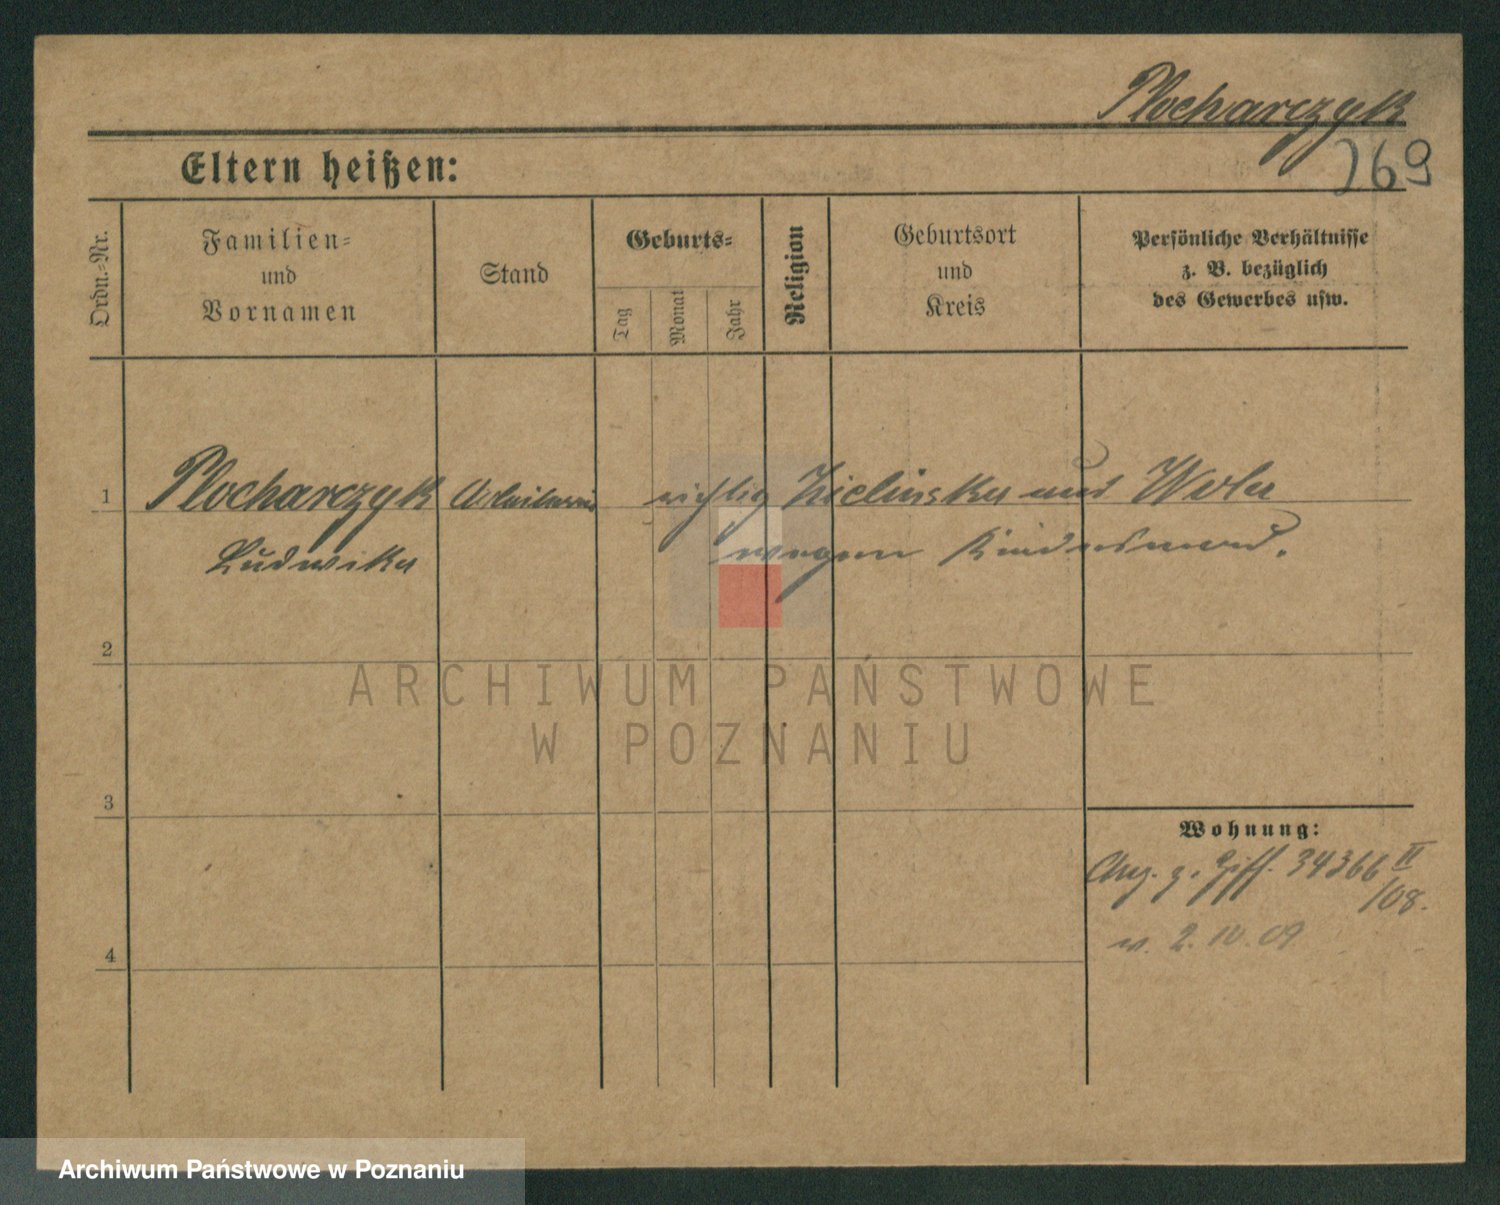 Plocharczyk
269
Eltern heißen:
Ordn.-Nr.
Familien-
und
Vornamen
Stand
Geburts-
Tag
Monat
Jahr
Religion
Geburtsort
und
Kreis
Persönliche Verhältnisse
z. B. bezüglich
des Gewerbes usw.
1 Plocharczyk Arbeiterin richtig Zielinska und
Ludwika wegen Kindesmord.
2
3
4
Wohnung:
34366 II
/08.
2. 10. 09
ARCHIWUM PAŃSTWOWE
W POZNANIU
Archiwum Państwowe w Poznaniu